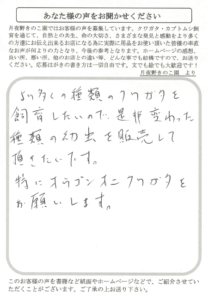 あなた様の声をお聞かせください
月夜野きのこ園ではお客様の声を募集しています。クワガタ・カブトムシ飼
育を通じて、自然との共生、命の大切さ、さまざまな発見と感動をより多く
の方達にお伝え出来るお店になる為に実際に用品をお使い頂いた皆様の率直
なお声が何よりの力となり、今後の参考となります。ホームページの感想、
良い所、悪い所、他のお店との違い等、どんな事でも結構ですので、お送り
ください。応募はがきの書き方は一切自由です。文でも絵でも大歓迎です！
月夜野きのこ園 より
より多くの種類のクワガタを
飼育したいので、是非変わった
種類の幼虫を販売して
頂きたいです。
特にオウゴンオニクワガタを
お願いします。
このお客様の声を書籍など紙面やホームページなどで、ご紹介させていた
だくことがございます。ご了承の上お送り下さい。